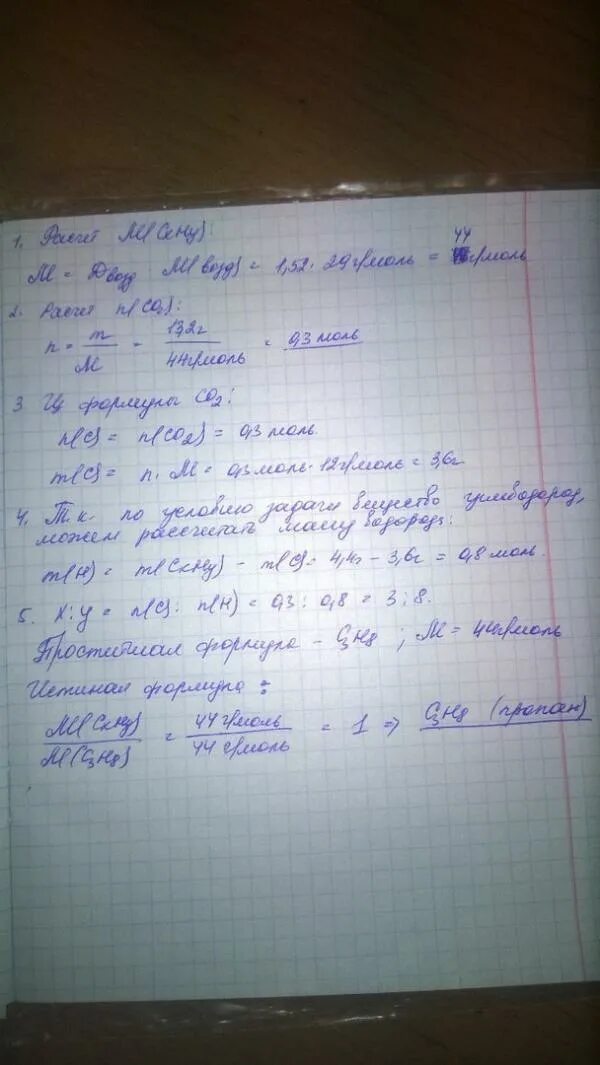 1. Расчет M(CxHy):
M = Dвозд · M(возд) = 1,52 · 29 г/моль = 44 г/моль
2. Расчет n(CO2):
n = m/M = 13,2г/44 г/моль = 0,3 моль
3 Из формулы CO2:
n(C) = n(CO2) = 0,3 моль.
m(C) = n · M = 0,3 моль · 12 г/моль = 3,6г
4. Т.к. по условию задачи вещество углеводород,
можем рассчитать массу водорода:
m(H) = m(CxHy) - m(C) = 4,4г - 3,6г = 0,8 моль.
5. X : y = n(C) : n(H) = 0,3 : 0,8 = 3 : 8.
формула - C3H8 ; M = 44 г/моль
Истиная формула :
M(CxHy)/M(C3H8) = 44 г/моль/44 г/моль = 1 => C3H8 (пропан)